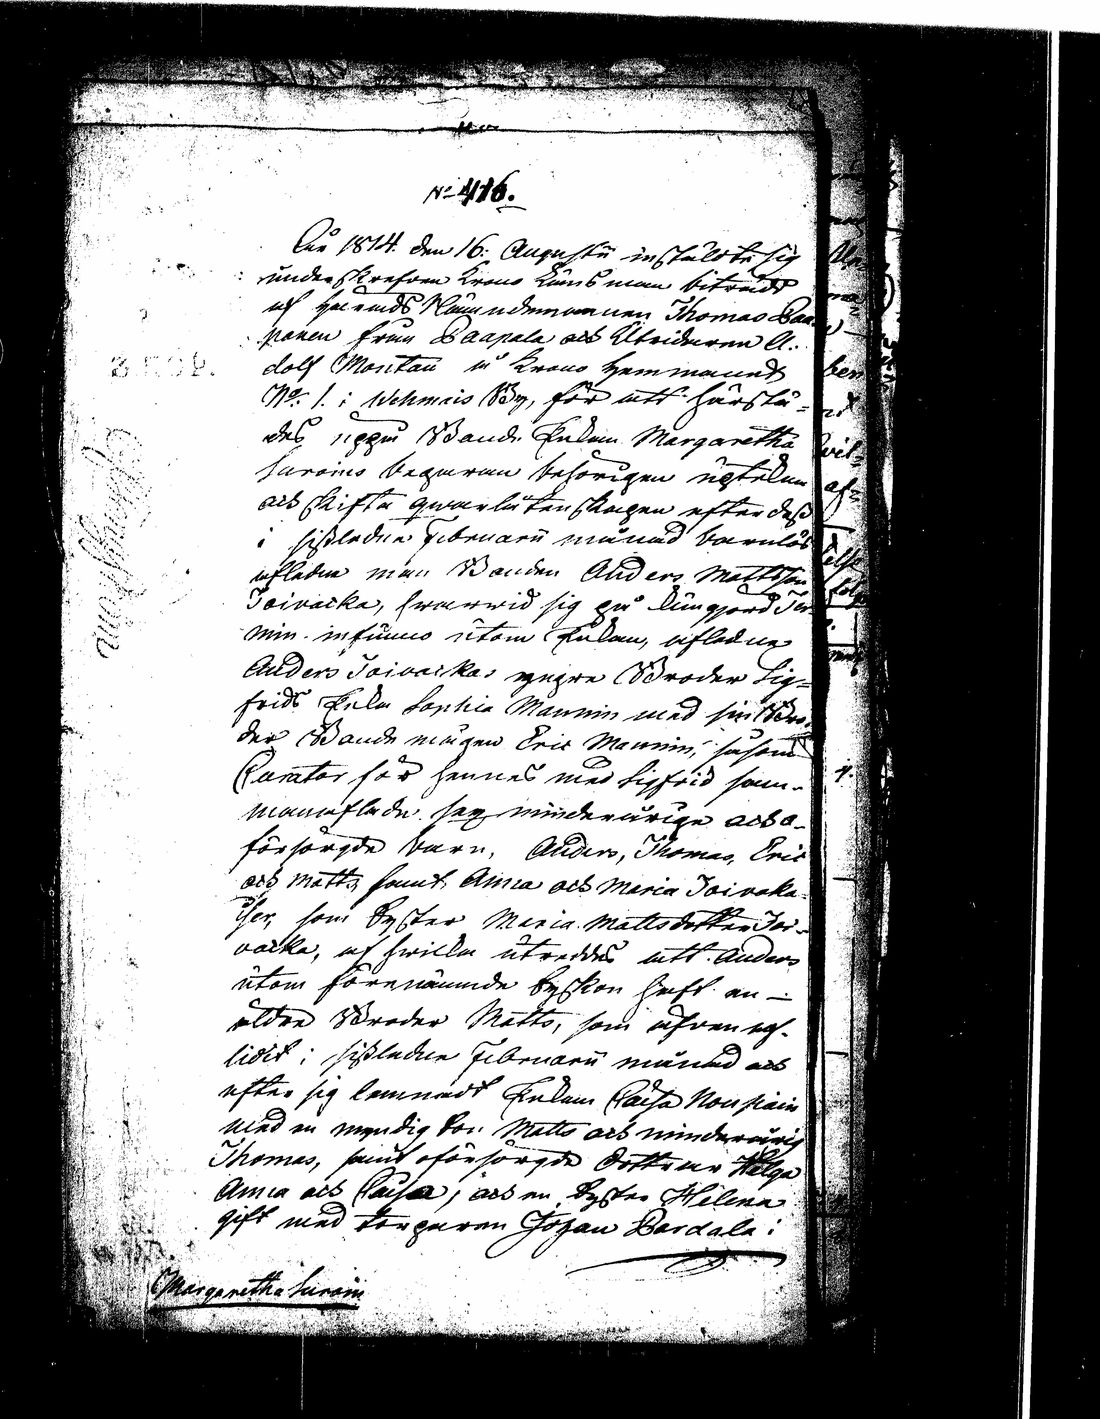 No 416.
År 1814 den 16. Augustii instälde sig
underskrefven Krono Länsman biträdd
af Härads Nämndemannen Thomas Paa-
panen från Paapala och Utridaren A-
dolf Montan å Krono Hemmanet
No. 1. i Wehmais By, för att härstä-
des uppå Bonde Enkan Margaretha
Suroins begäran behörigen upteckna
och skifta qvarlåtenskapen efter dess
i sistledne Februarii månad barnlös
aflidne man Bonden Anders Mattsson
Toivacka, hvarvid sig på tillgjord
min infunno utom Enkan, aflidne
Anders Toivackas yngre Broder Sig-
frids Enka Sophia Mannin med sin Bro-
der Bonde mågen Eric Mannin, såsom
Curator för hennes med Sigfrid sam-
manaflade sex minderårige och o-
försörgde barn, Anders, Thomas, Eric
och Matts samt Anna och Maria Toivaka-
iser, som Syster Maria Mattsdotter Toi-
vacka, af hvilka utreddes att Anders
utom förenämnde Syskon haft en
äldre Broder Matts, som äfven af-
lidit i sistledne Februarii månad och
efter sig lemnadt Enkan Caisa Nousiain
med en myndig Son Matts och minderårig
Thomas, samt oförsörgde döttrar Helga
Anna och Caisa; och en Syster Helena
gift med torparen Johan Pardala i
Margaretha Suroin